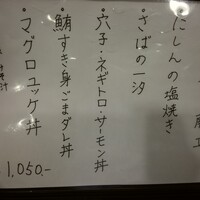 にしんの塩焼き
・さばの一汐
・穴子・ネギトロ・サーモン丼
・鮪すき身ごまダレ丼
・マグロユッケ丼
1,050-